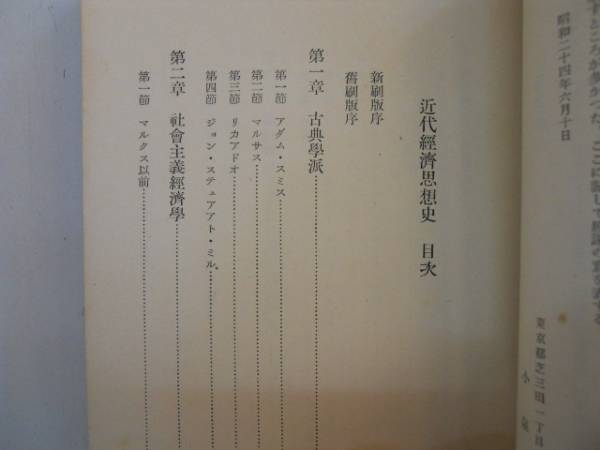 すところが多かつた。ここに記して感謝の意を表する
昭和二十四年六月十日
東京都芝三田一丁目
小泉
近代經濟思想史　目次
新刷版序
舊刷版序
第一章　古典學派
第一節　アダム・スミス
第二節　マルサス
第三節　リカアドオ
第四節　ジョン・ステュアアト・ミル
第二章　社會主義經濟學
第一節　マルクス以前